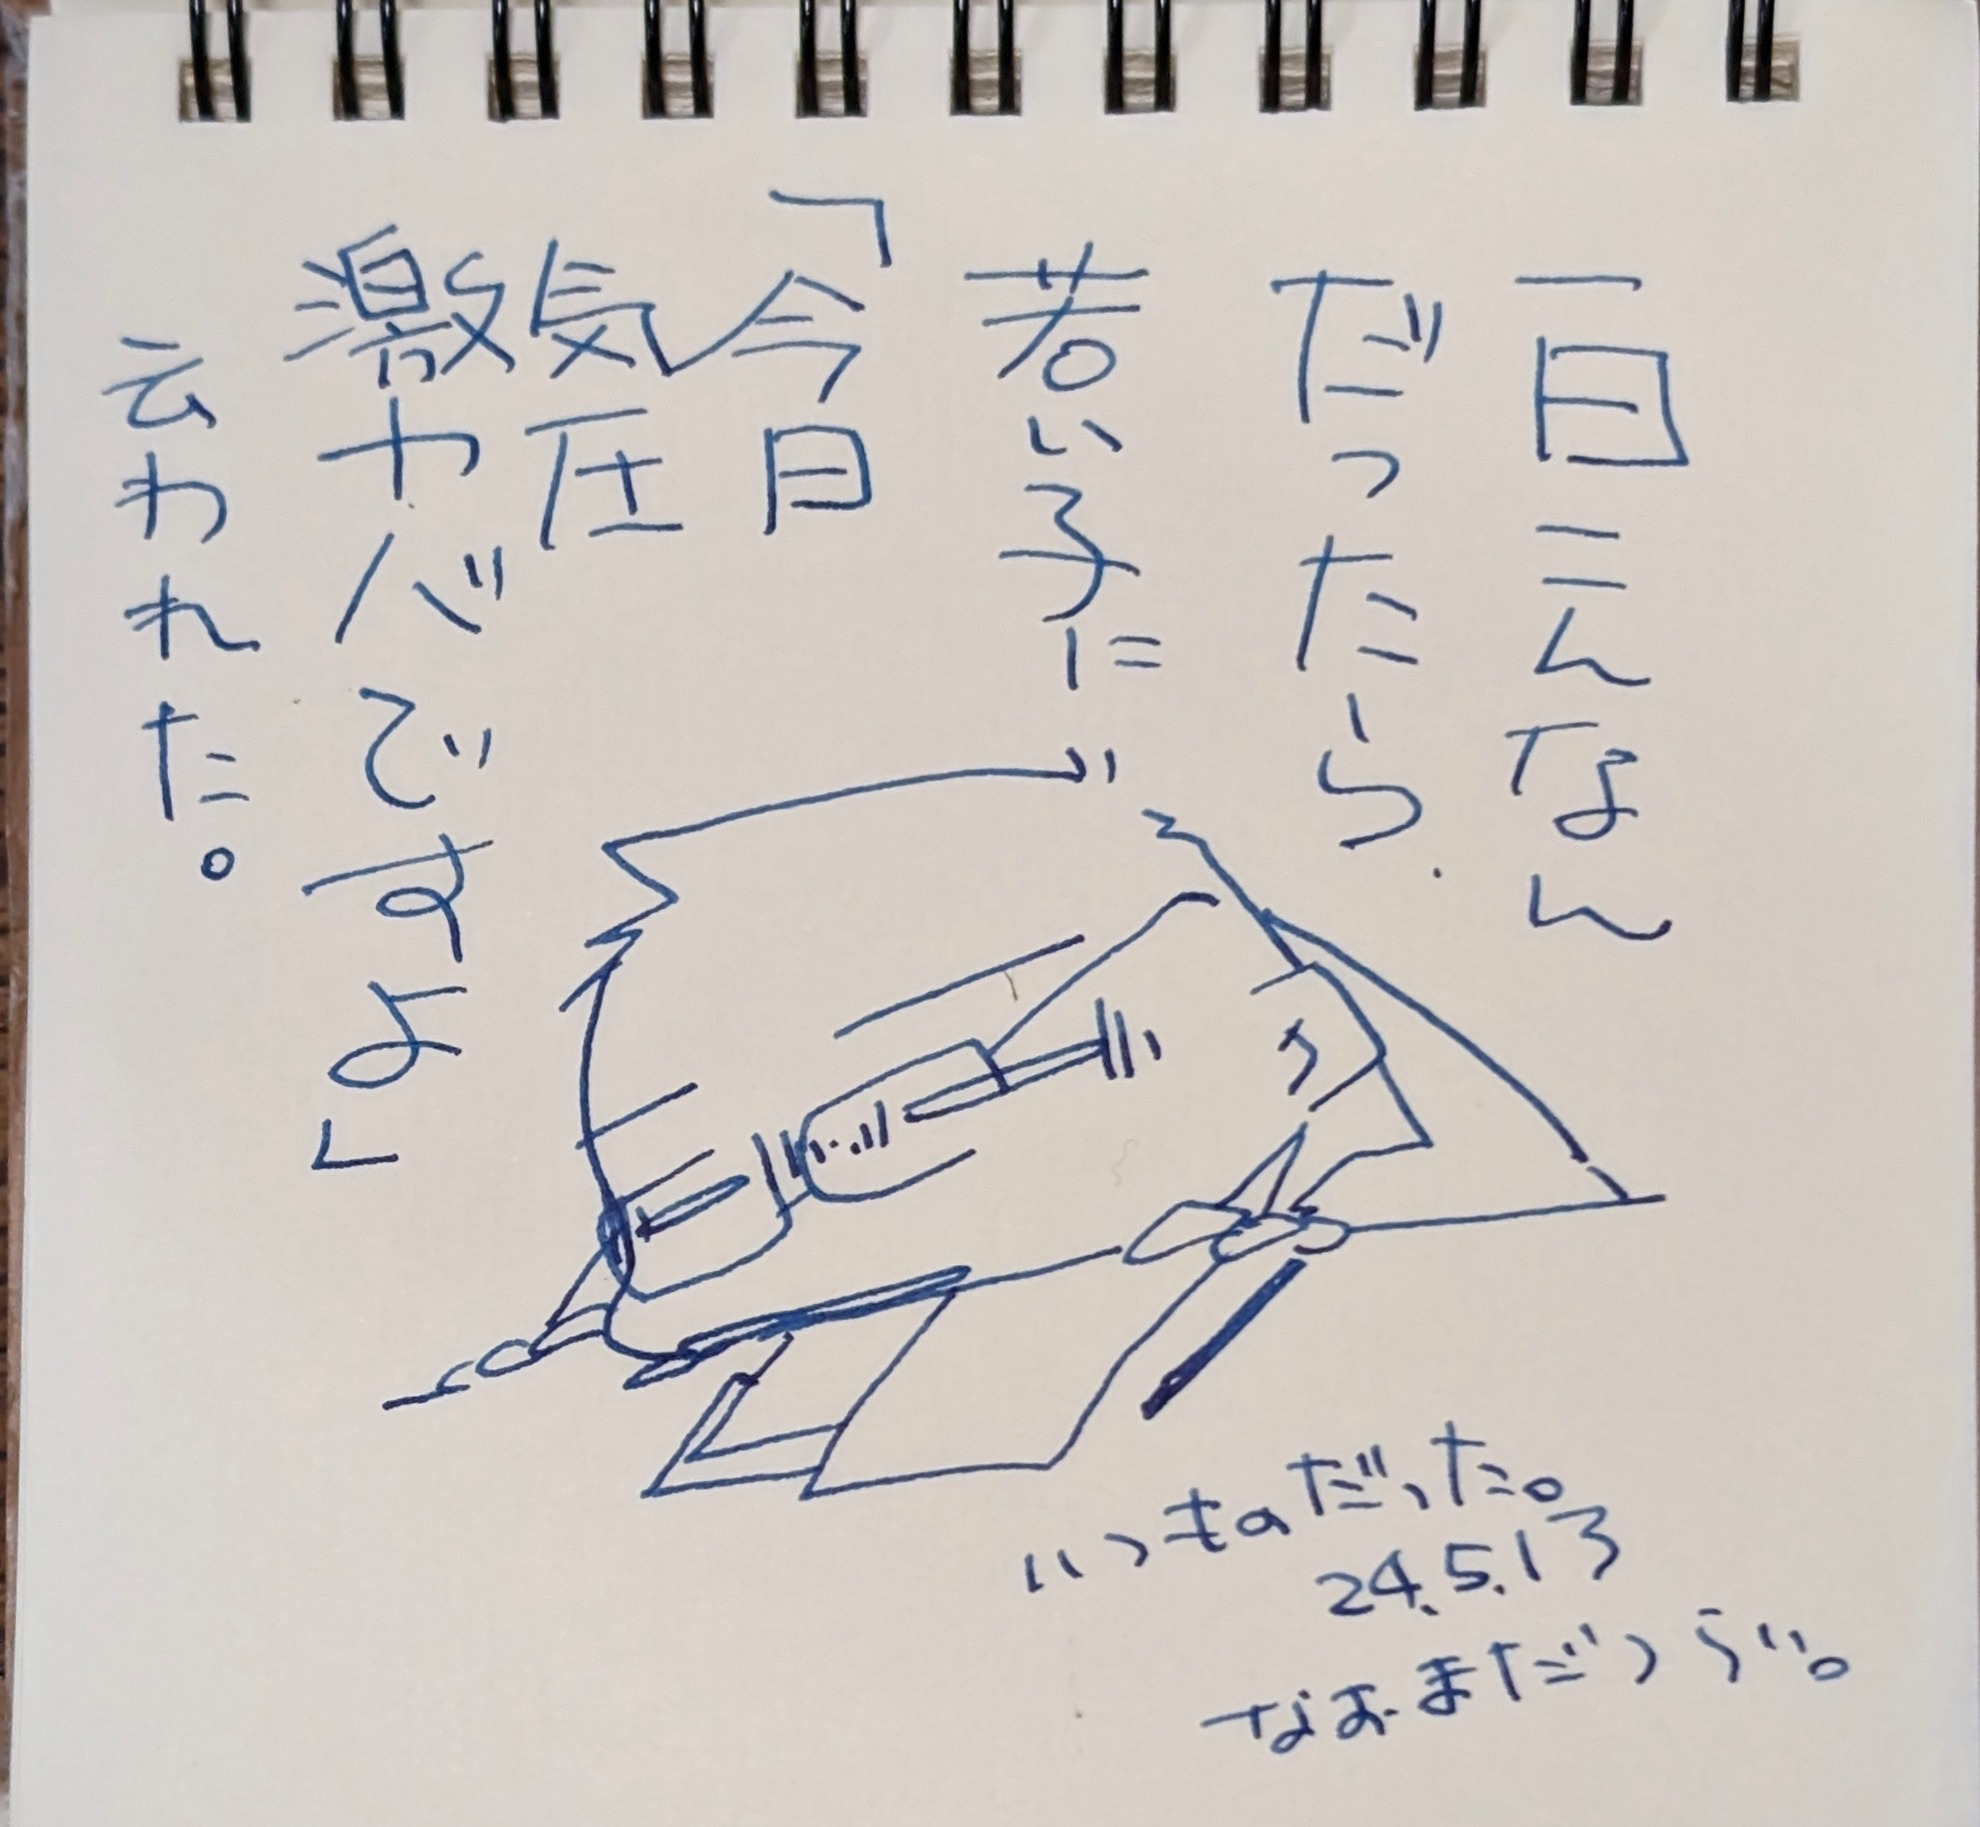 一日こんなん
だったら
若い子に
「今日
気圧
激ヤバですよ」
云われた。
いつものだった。
24.5.13
なお、まだつらい。